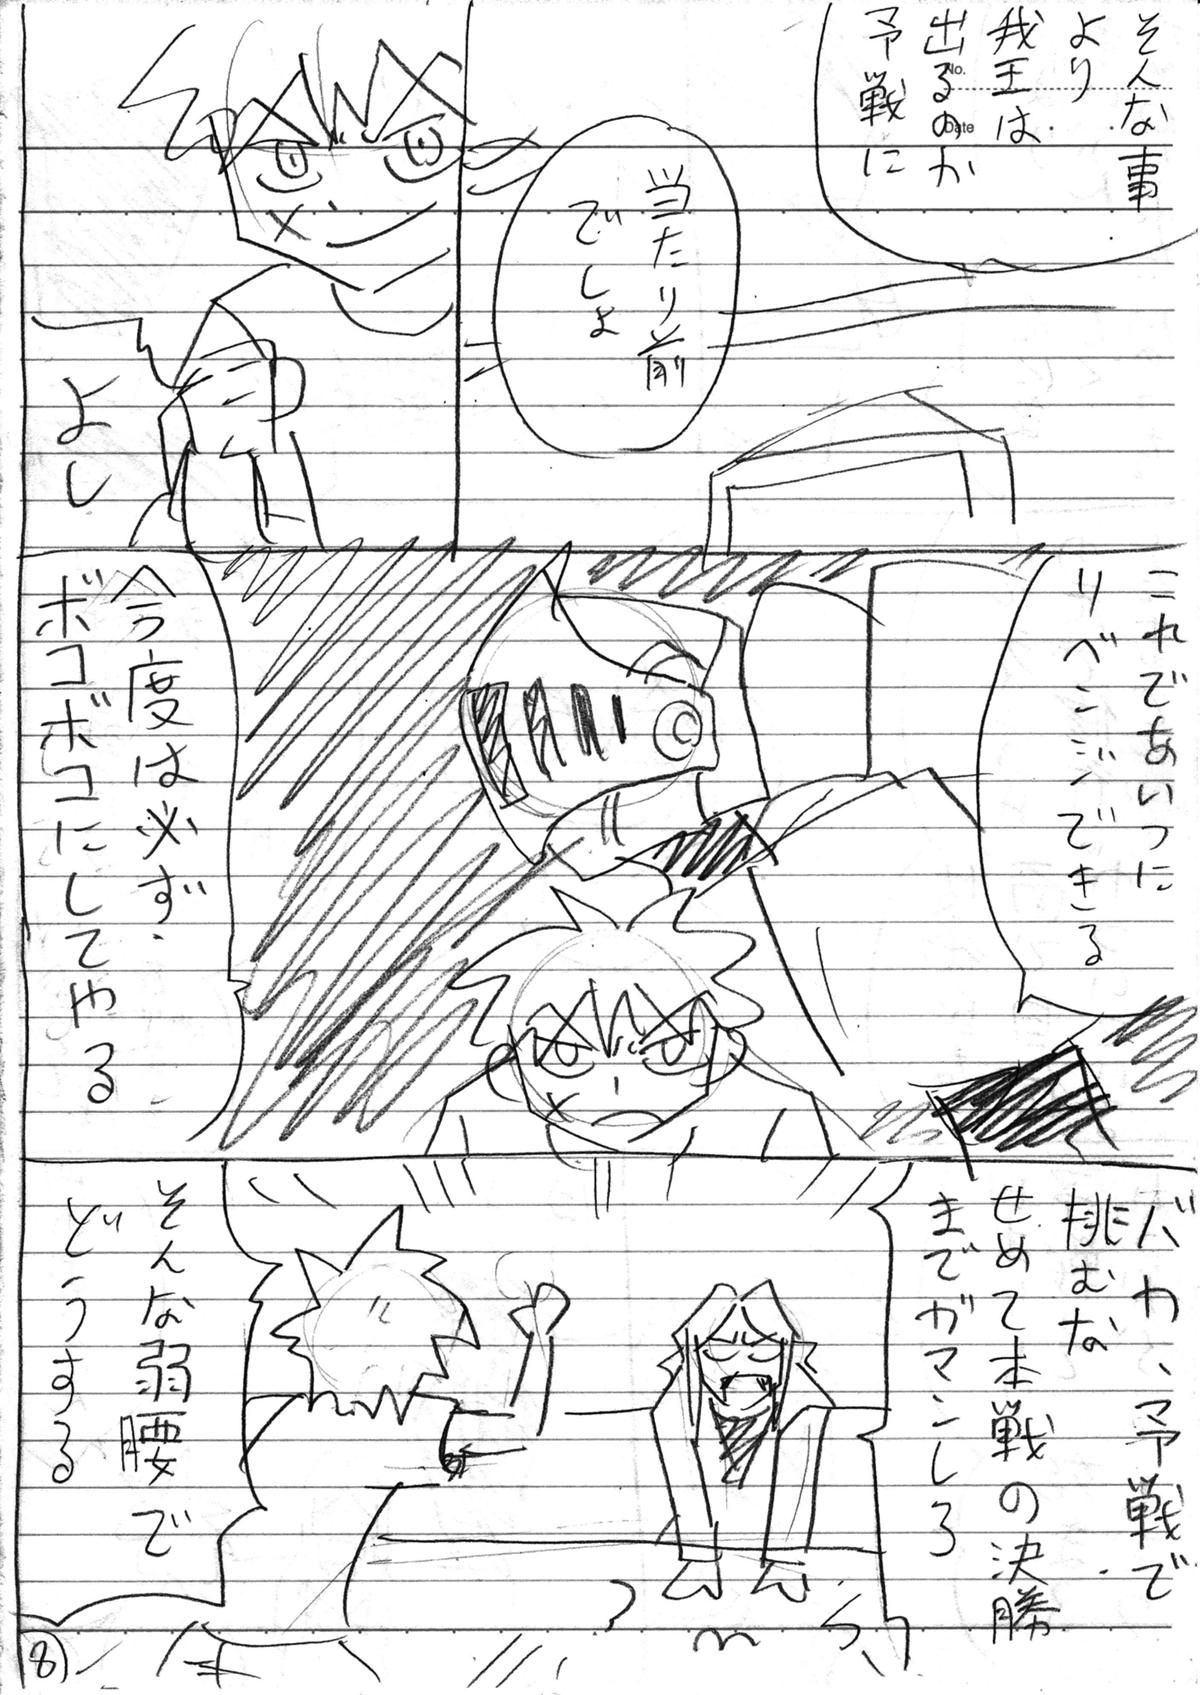 そんな事
より
我王は
出るのか
予戦に
No.
Date
当たり前
でしょ
よし
これであいつに
リベンジできる
今度は必ず
ボコボコにしてやる
バカ、予戦で
挑むな
せめて本戦の決勝
までガマンしろ
そんな弱腰で
どうする
8)